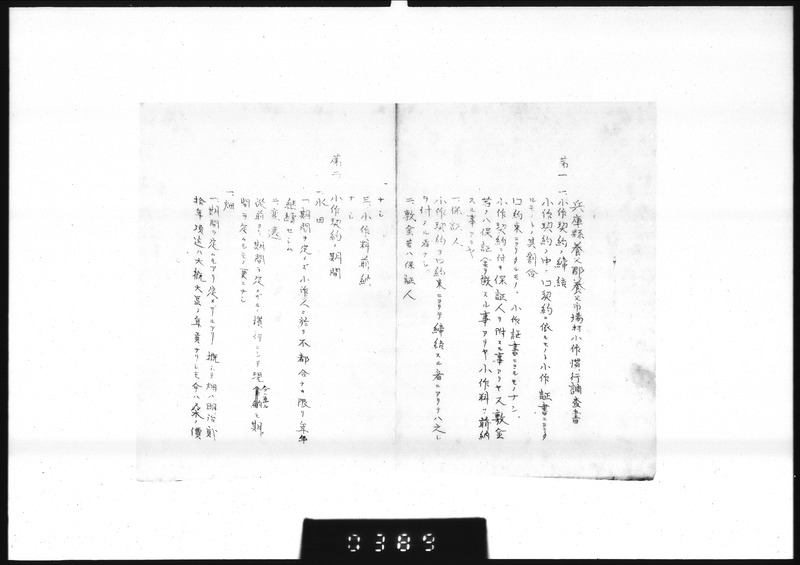 兵庫縣養父郡養父市場村小作慣行調査書
第一 一、小作契約ノ締結
小作契約ノ中、口契約ニ依ルモノト小作証書ニヨリタ
ルモノトノ其割合
口約束ニヨリタルモノ、小作証書ニヨルモノナシ、
小作契約ニ付キ保証人ヲ附スル事アリヤ又敷金
若クハ保証金ヲ徴スル事アリヤ小作料ヲ前納
スル事アリヤ
一、保証人
小作契約ヲ口約束ニヨリテ締結スル者ニアリテハ之レ
ヲ付スル者ナシ、
二、敷金若ハ保証人
ナシ
三、小作料前納
ナシ
第二 小作契約ノ期間
一、水田
一、期間ヲ定メズ小作人ニ於テ不都合ナキ限リ年年
継続セシム
二、変遷
従前ヨリ期間ヲ定メザル慣行ニシテ現今
間ヲ定ムルモノ更ニナシ
一、畑
一、期間ヲ定ムルモアリ定メザルアリ 概シテ畑ハ明治貮
拾年頃迄ハ大概大豆ノ年貢ナリシモ今ハ桑ノ價
0389